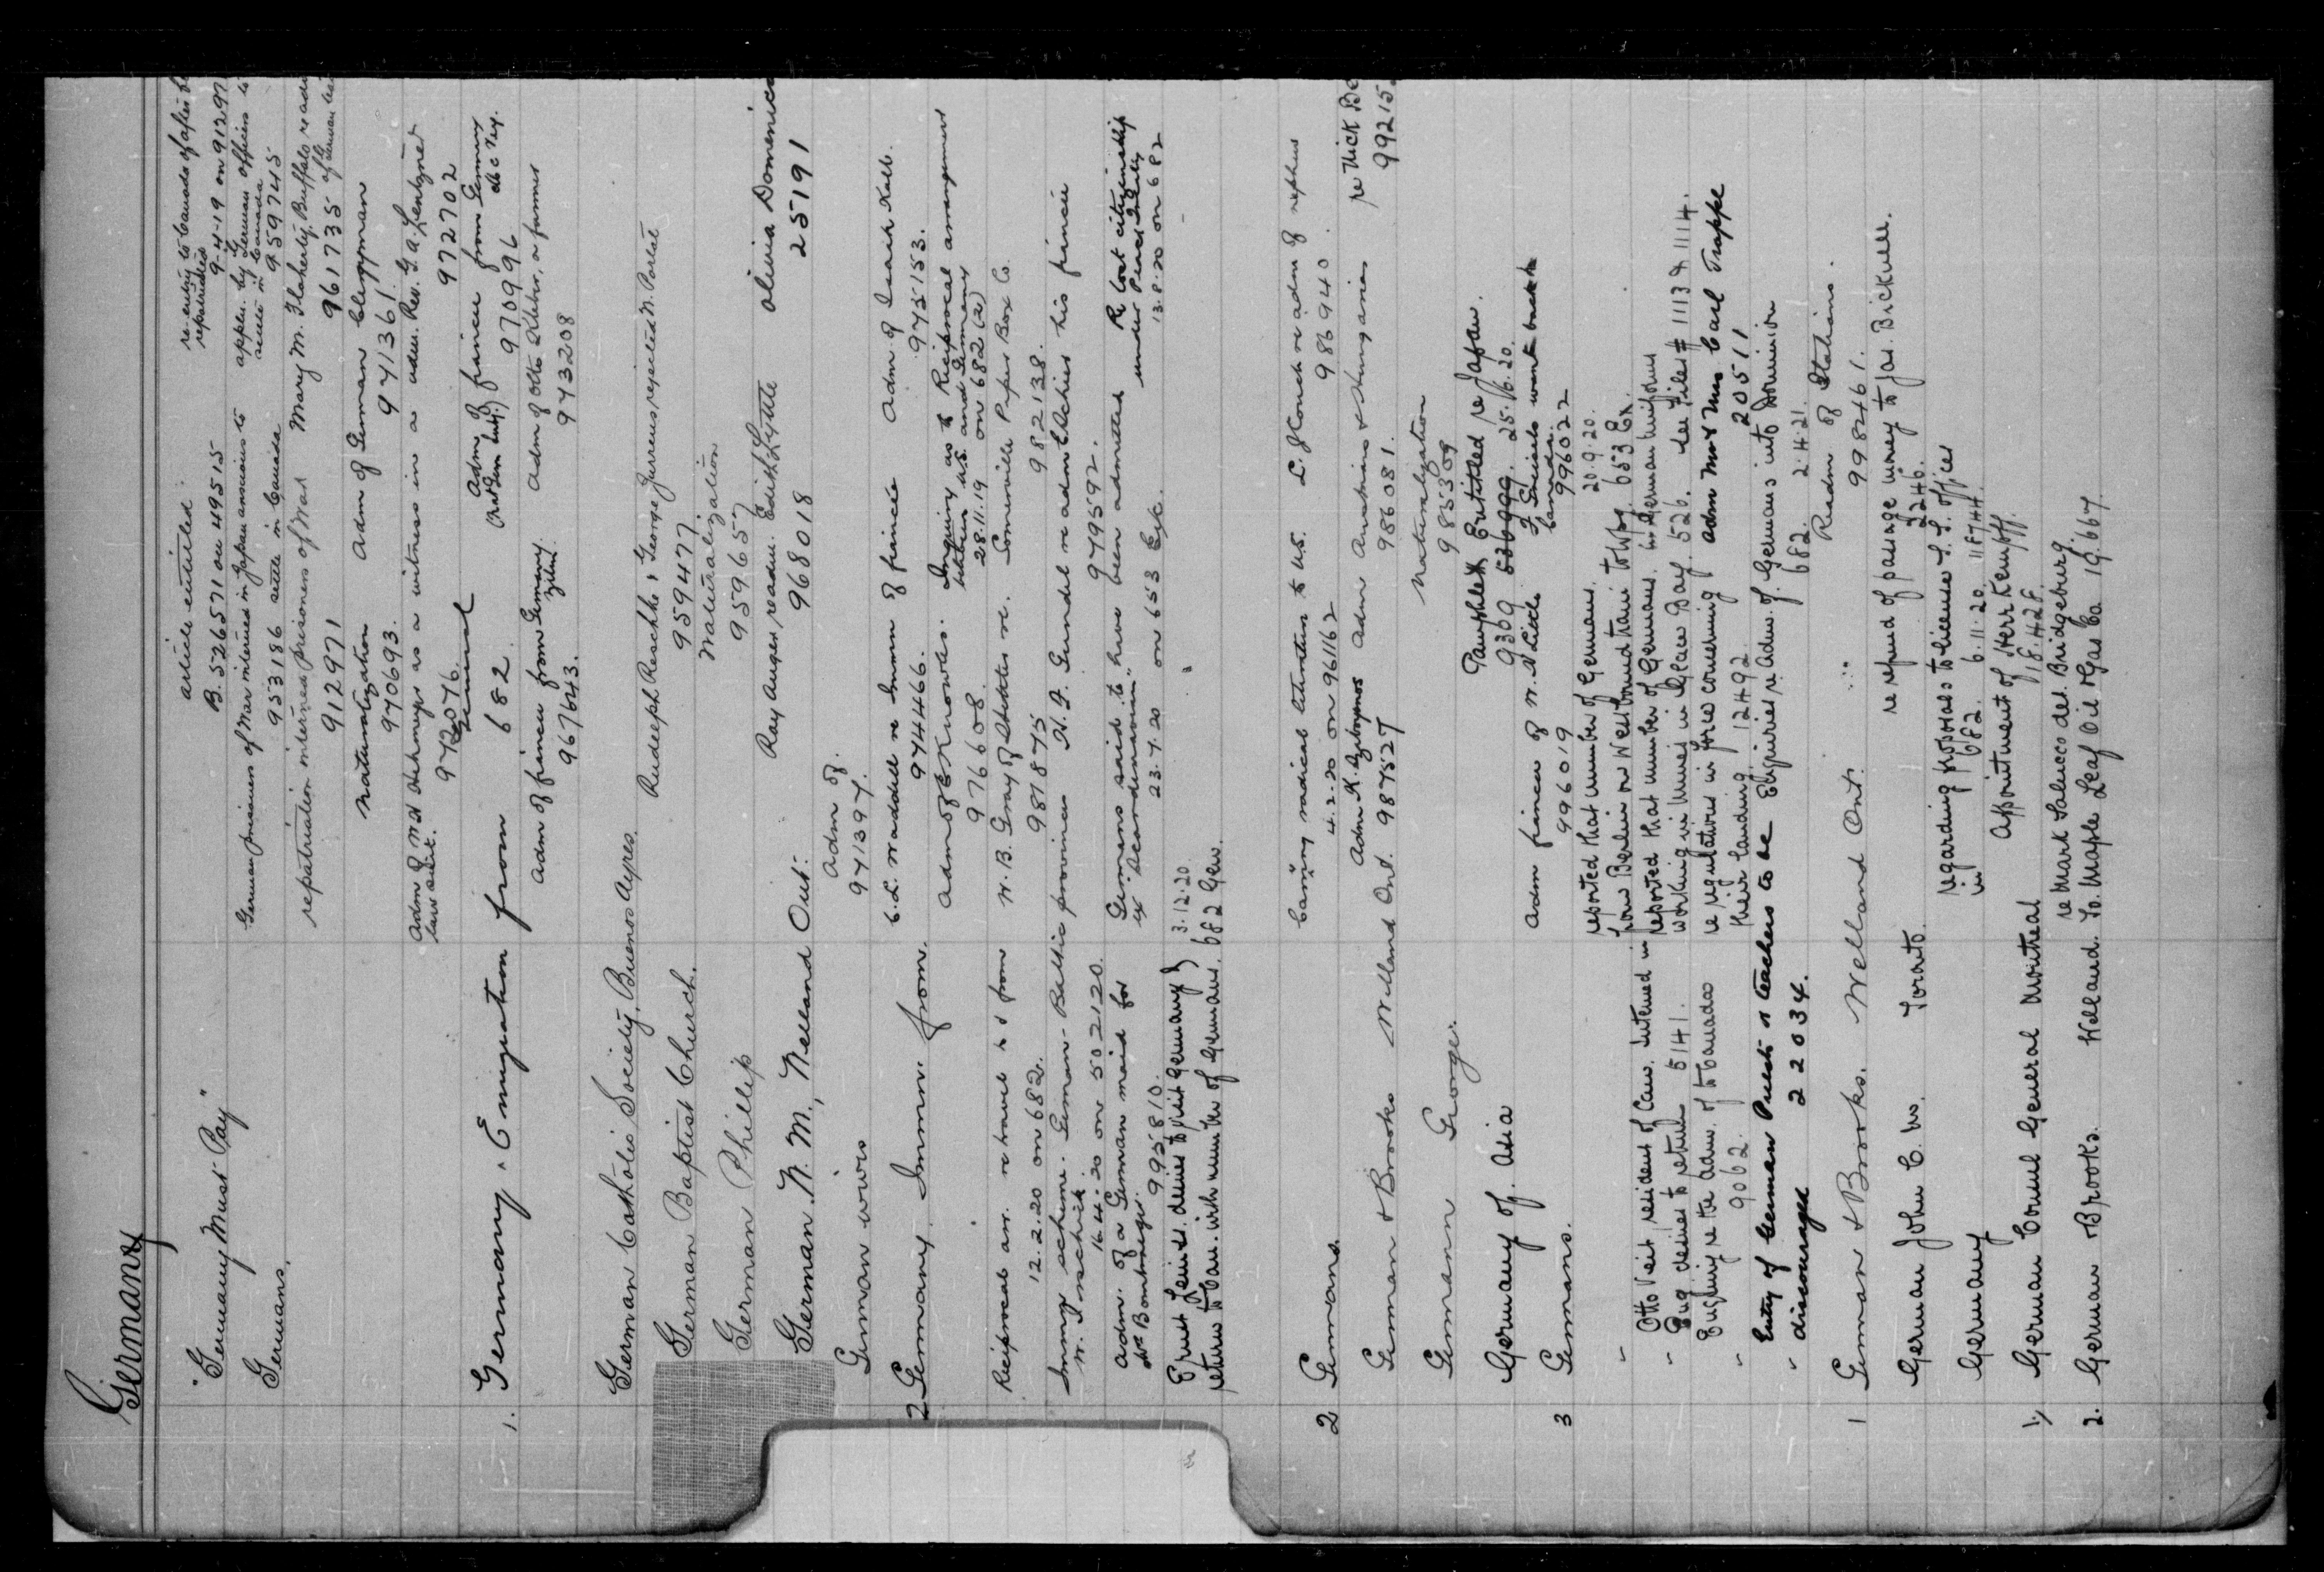 Germany
"Germany Must Pay" article entitled: re-entry to Canada of after
B. 526571 on 49515 repatriated 9-4-19 on 91297
Germans. German prisoners of War interned in Japan anxious to applcn. by German officers to
953186 settle in Canada settle in Canada 959745
repatriation interned prisoners of War Mary M. Flaherty, Buffalo readm
912971 961735 of German
Naturalization Adm of German Clergyman
970693. 971361.
Adm of as a witness in a adm. Rev. G.A.
law suit. 972076. 972702
General
1. Germany. Emigration from 682. Adm of fiancee from Germany
970996
Adm of fiancee from Germany. Adm of Otto Kleber, a farmer
967643. 973208
German Catholic Society, Buenos Ayres.
German Baptist Church. Rudolph Reschke & George rejected N. Portal
959477
German Phillip Naturalization
959657
German N. M., Welland Ont. Ray Auger, readm. Edith Lyttle Olivia Domenico
968018 25191
German wives Adm of.
971397.
2 Germany. Immn. from. C.L. Waddell re Immn of fiancée Adm of Isaiah Kalb.
974466. 975153.
Adm of E Knowles. Inquiry as to Reciprocal arrangement
976608. between U.S. and Germany
28.11.19 on 682 (2)
Reciprocal arr. re travel to & from W. B. Gray of States re. Somerville Paper Box Co.
12.2.20 on 682. 981875 982138.
Immg scheme. German-Baltic provinces H. F. Gundel re adm his fiancee
16.4.20 on 502120. 979592.
Adm. of a German maid for Germans said to have been admitted R lost citizenship
Mrs Bontreger. ex "Scandinavian" under Peace Treaty
995810. 23.7.20 on 653 Esp. 13.8.20 on 682
Ernst desires to visit Germany } 3.12.20
return to Can. with number of Germans. } 682 Gen.
2 Germans. Carrying radical literature to U.S. L. J. Couch re adm of nephew
4.2.20 on 961162 986940.
German & Brooks Welland Ont. Adm K. Adm Austrians & Hungarians re Nick
987527 986081. 99215
Germann George. Naturalization
985309
Germany of. Asia Pamphlet Entitled re Japan.
9309 536999. 25.6.20.
3 Germans. Adm fiancee of W. N Little
996019 Canada. 996022
reported that number of Germans. 20.9.20.
" Otto Veit resident of Can. Interned in from Berlin on Westbound train to Wpg. 653 Ex.
" Eng. desires to return 5141. reported that number of Germans. in German uniforms
working in mines in Glace Bay. 526. See Files # 1113 & 1114.
" Enquiry re the Adm. of to Canada re regulations in force concerning Adm Mr & Mrs Carl Trappe
9062. their landing 12492 20511
" Entry of German Priests or teachers to be Enquiries re Adm. of. Germans into Dominion
discouraged 22034. 682. 2.4.21.
1 German & Brooks. Welland Ont. Readm of Italians.
998461.
German John C. W. Toronto. re refund of passage money to Jas. Bicknell.
2246.
Germany regarding proposals to license S.S. offices
in 682. 6.11.20. 118744.
1/ German Consul General Montreal Appointment of Herr Kempff.
118428.
2. German & Brooks. Welland. re Mark Salucco det. Bridgeburg.
To. Maple Leaf Oil & Gas Co. 19667